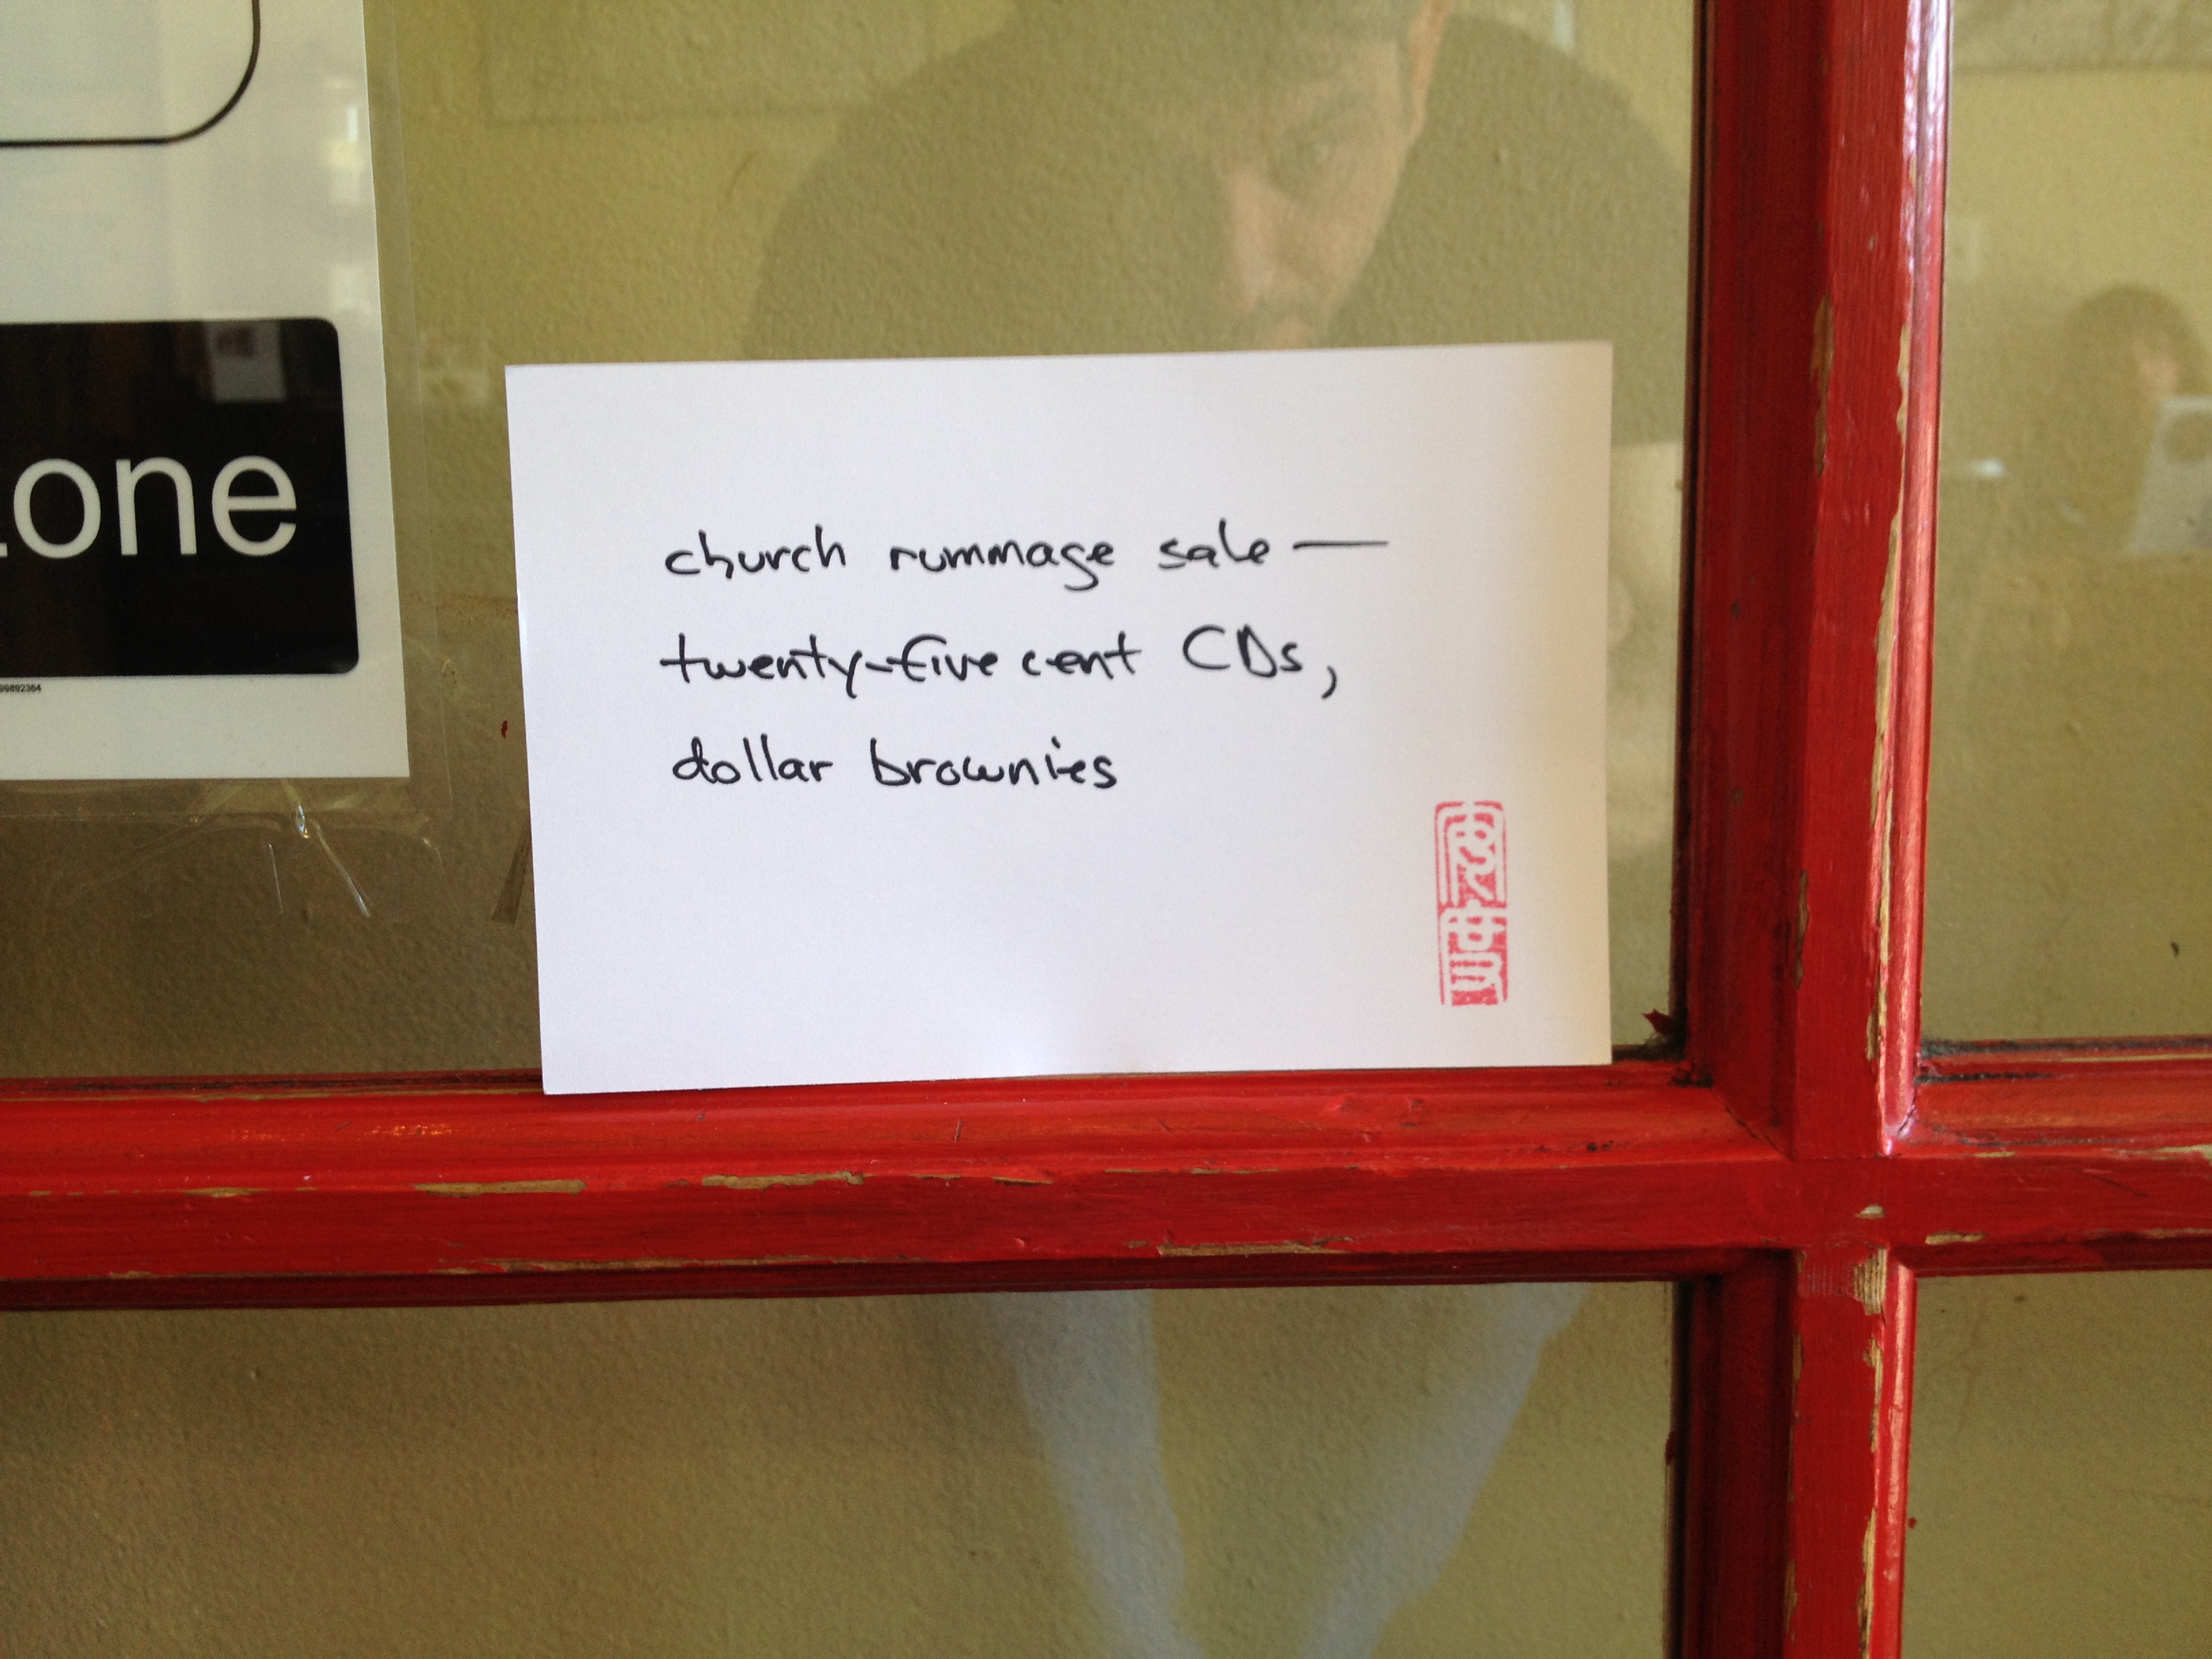 one
99892364
church rummage sale —
twenty-five cent CDs,
dollar brownies